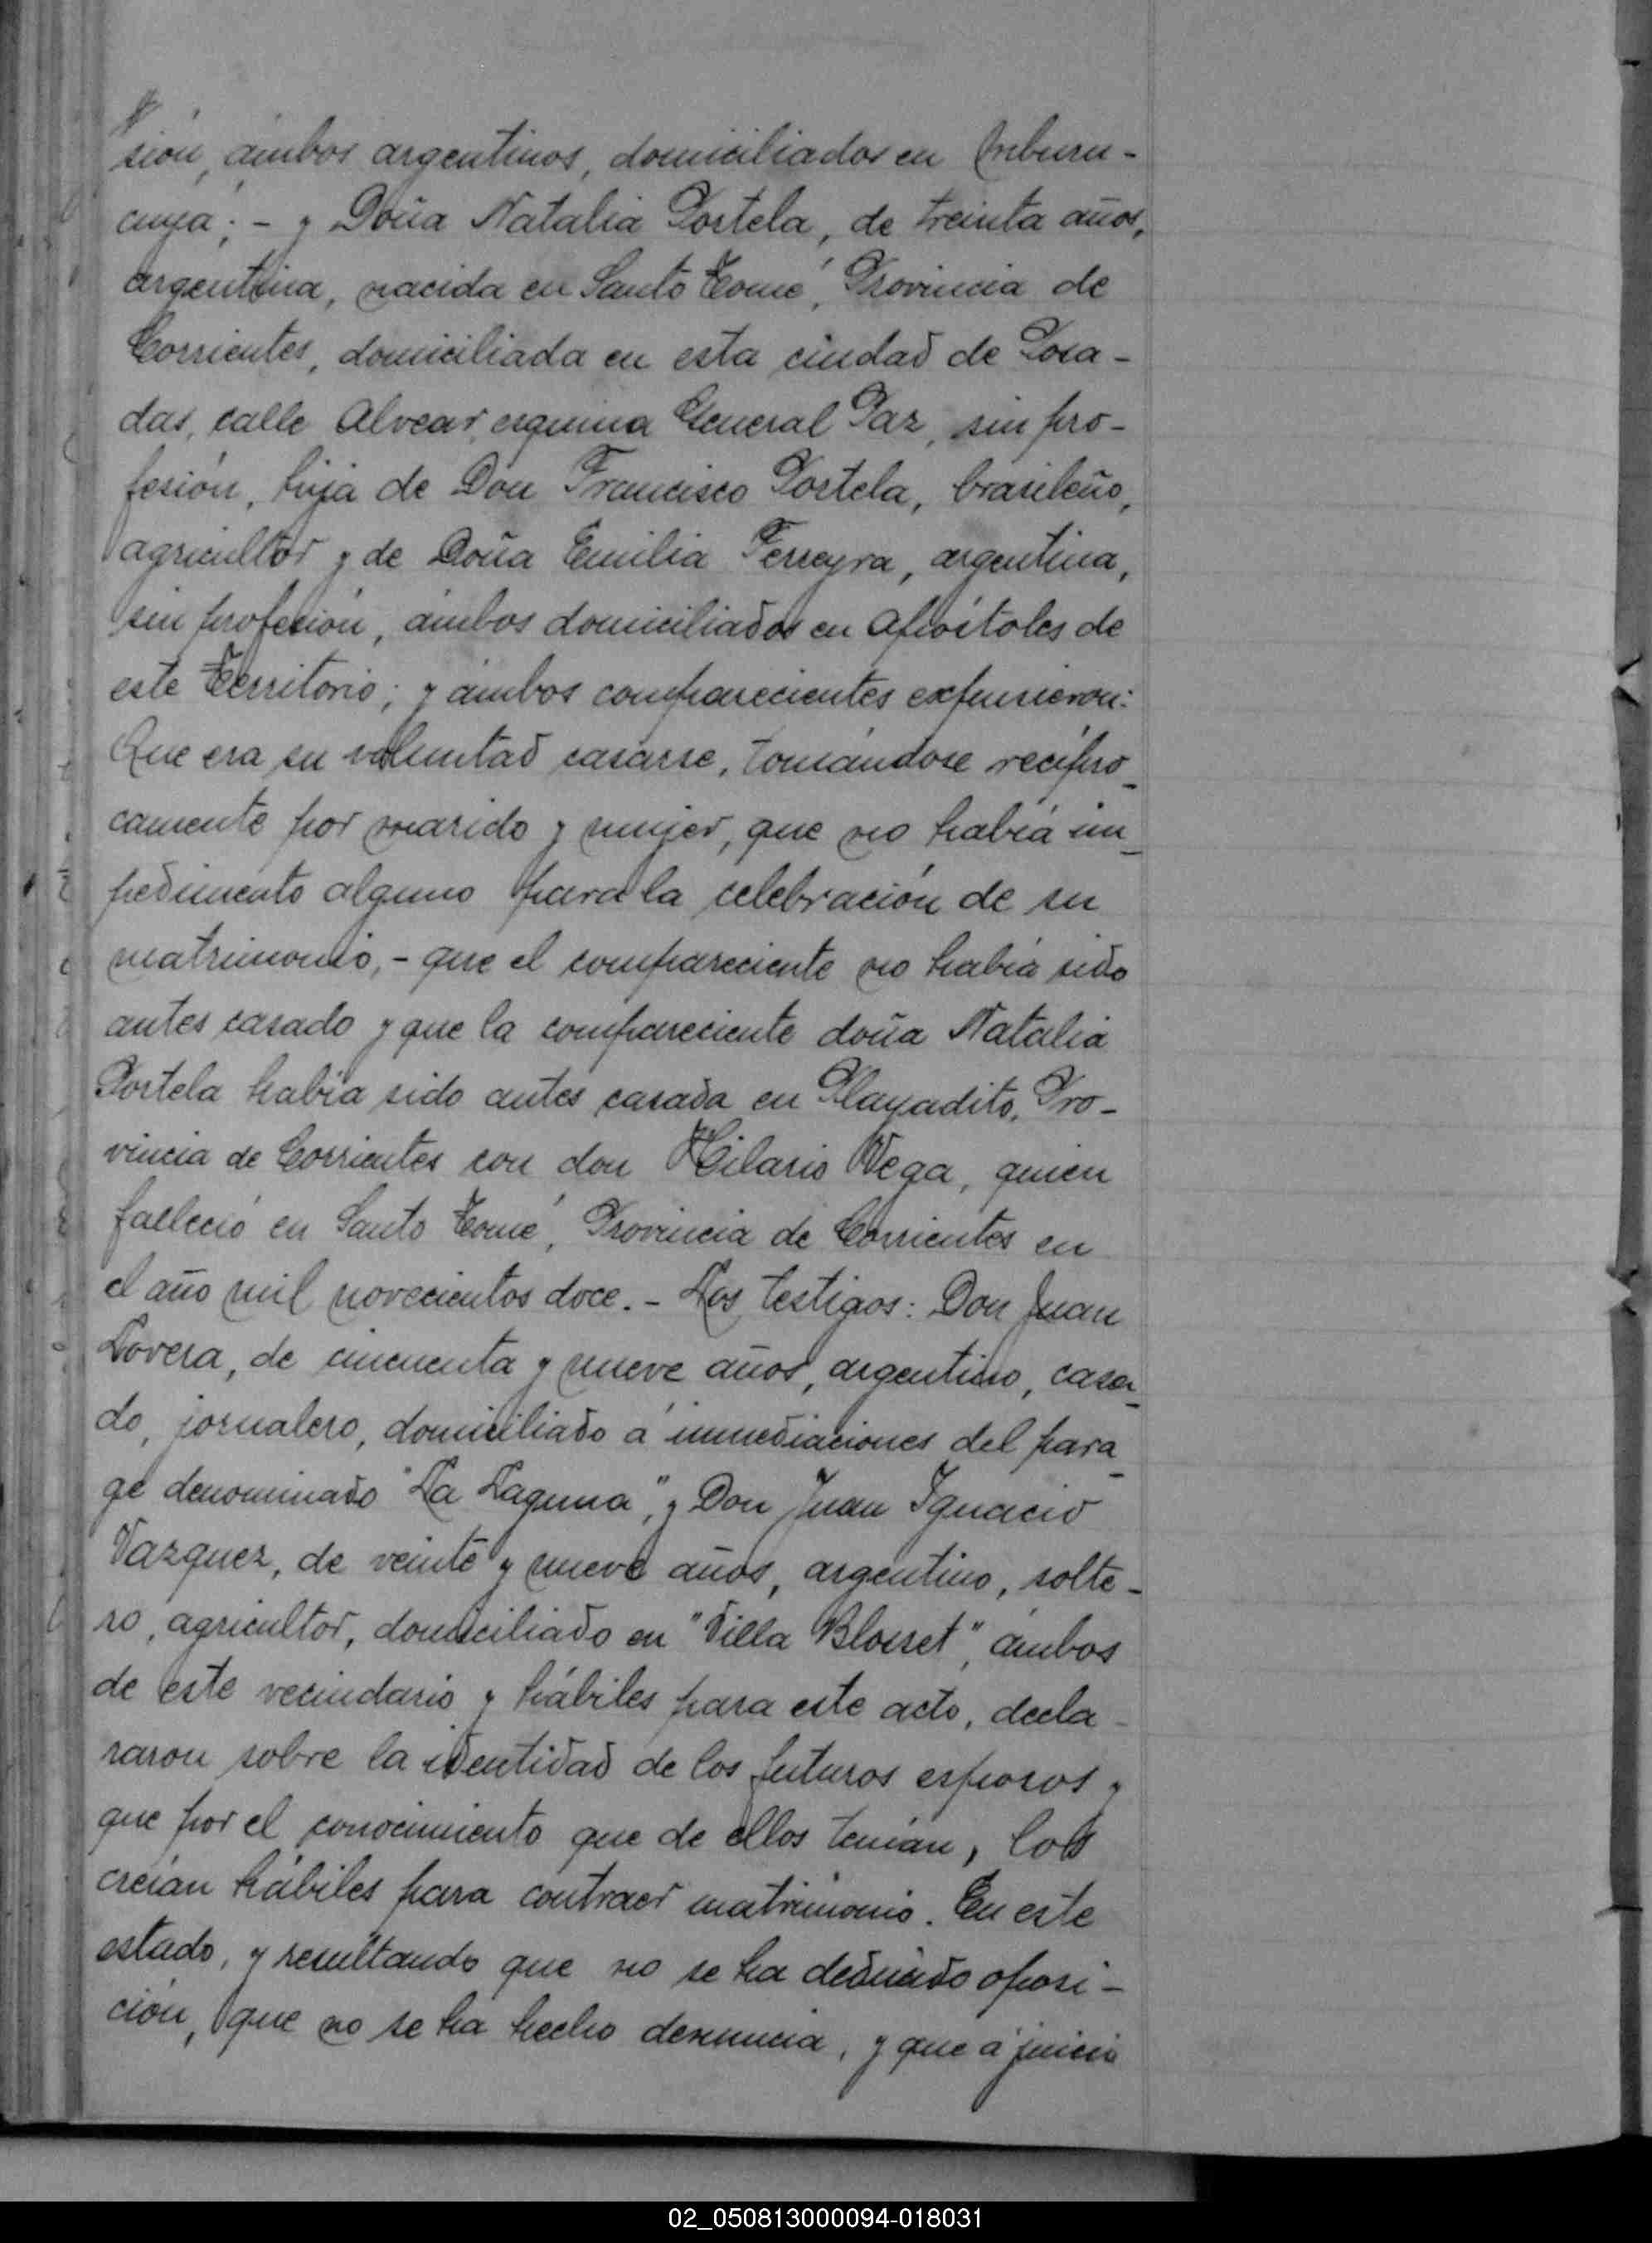 sión, ámbos argentinos, domiciliados en
cuya; - y Doña Natalia Portela, de treinta años,
argentina, nacida en Santo Tomé, Provincia de
Corrientes, domiciliada en esta ciudad de Posa-
das, calle Alvear esquina General Paz, sin pro-
fesión, hija de Don Francisco Portela, brasileño,
agricultor y de Doña Emilia Ferreyra, argentina,
sin profesión, ámbos domiciliados en Apóstoles de
este Territorio; y ámbos comparecientes expusieron:
Que era su voluntad casarse, tomándose recípro-
camente por marido y mujer, que no había im-
pedimento alguno para la celebración de su
matrimonio, - que el compareciente no había sido
antes casado y que la compareciente doña Natalia
Portela había sido antes casada en Playadito, Pro-
vincia de Corrientes con don Hilario Vega, quien
falleció en Santo Tomé, Provincia de Corrientes en
el año mil novecientos doce. - Los testigos: Don Juan
Lovera, de cincuenta y nueve años, argentino, casa-
do, jornalero, domiciliado á inmediaciones del para-
ge denominado "La Laguna", y Don Juan Ignacio
Vazquez, de veinte y nueve años, argentino, solte-
ro, agricultor, domiciliado en "Villa Blosset", ámbos
de este vecindario y hábiles para este acto, decla-
raron sobre la identidad de los futuros esposos y
que por el conocimiento que de ellos tenían, los
creían hábiles para contraer matrimonio. En este
estado, y resultando que no se ha deducido oposi-
ción, que no se ha hecho denuncia, y que á juicio
02_050813000094-018031